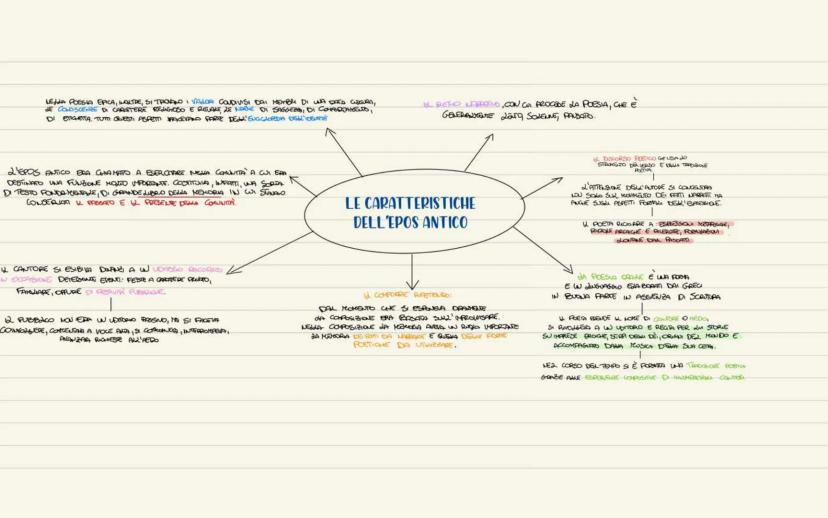 NELLA POESIA EPICA, INOLTRE, SI TROVANO I VALORI CONDIVISI DAI MEMBRI DI UNA DATA CULTURA,
LE CONOSCENZE DI CARATTERE RELIGIOSO E REGALE, LE NORME DI SAGGEZZA, DI COMPORTAMENTO,
DI ETICHETTA. TUTTI QUESTI ASPETTI FACEVANO PARTE DELL'ENCICLOPEDIA DELL'
IL RITMO NARRATIVO, CON CUI PROCEDE LA POESIA, CHE È
GENERALMENTE LENTO, SOLENNE, PACATO.
L'EPOS ANTICO ERA CHIAMATO A ESERCITARE NELLA COMUNITÀ A CUI ERA
DESTINATO UNA FUNZIONE MOLTO IMPORTANTE. COSTITUIVA, INFATTI, UNA SORTA
DI TESTO FONDAMENTALE, DI GRANDE LIBRO DELLA MEMORIA IN CUI STAVANO
CONSERVATI IL PASSATO E IL PRESENTE DELLA COMUNITÀ.
LE CARATTERISTICHE
DELL'EPOS ANTICO
IL DISCORSO POETICO CHE USA LO
STRUMENTO DEL VERSO E DELLA TRADIZIONE
POETICA
L'ATTENZIONE DELL'AUTORE SI CONCENTRA
NON SOLO SUL MOVIMENTO DEI FATTI NARRATI MA
ANCHE SUGLI ASPETTI FORMALI DELL'ESPRESSIONE.
IL POETA RICORRE A ESPRESSIONI METAFORICHE,
PAROLE ARCAICHE E RICERCATE, FORMULAZIONI
LONTANE DAL PARLATO
IL CANTORE SI ESIBIVA DINANZI A UN UDITORIO RACCOLTO
IN OCCASIONE DETERMINATE EVENTI: FESTE A CARATTERE PRIVATO,
FAMILIARE, OPPURE DI FESTIVITÀ PUBBLICHE.
IL PUBBLICO NON ERA UN UDITORIO PASSIVO, MA SI FACEVA
COINVOLGERE, COMMENTAVA A VOCE ALTA, SI COMMUOVEVA, INTERROMPEVA,
AVANZAVA RICHIESTE ALL'AEDO
IL COMPORRE RIPETENDO:
DAL MOMENTO CHE SI ESPONEVA ORALMENTE
LA COMPOSIZIONE ERA BASATA SULL'IMPROVVISARE.
NELLA COMPOSIZIONE LA MEMORIA AVEVA UN RUOLO IMPORTANTE
LA MEMORIA DEI FATTI DA NARRARE E QUELLA DELLE FORME
POETICHE DA UTILIZZARE.
LA POESIA ORALE È UNA FORMA
E UN LINGUAGGIO ELABORATI DAI GRECI
IN BUONA PARTE IN ASSENZA DI SCRITTURA
IL POETA PRENDE IL NOME DI CANTORE O AEDO,
SI RIVOLGEVA A UN UDITORIO E RECITA PER LUI STORIE
SU IMPRESE EROICHE, STIRPI DEGLI DEI, ORIGINI DEL MONDO E
ACCOMPAGNATO DALLA MUSICA DELLA SUA CETRA.
NEL CORSO DEL TEMPO SI È FORMATA UNA TRADIZIONE POETICA
GRAZIE ALLE ESPERIENZE COMPOSITIVE DI INNUMEREVOLI CANTORI